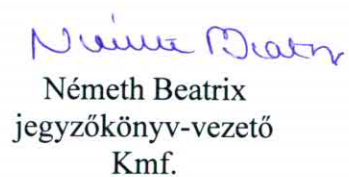 Németh Beatrix
Németh Beatrix
jegyzőkönyv-vezető
Kmf.